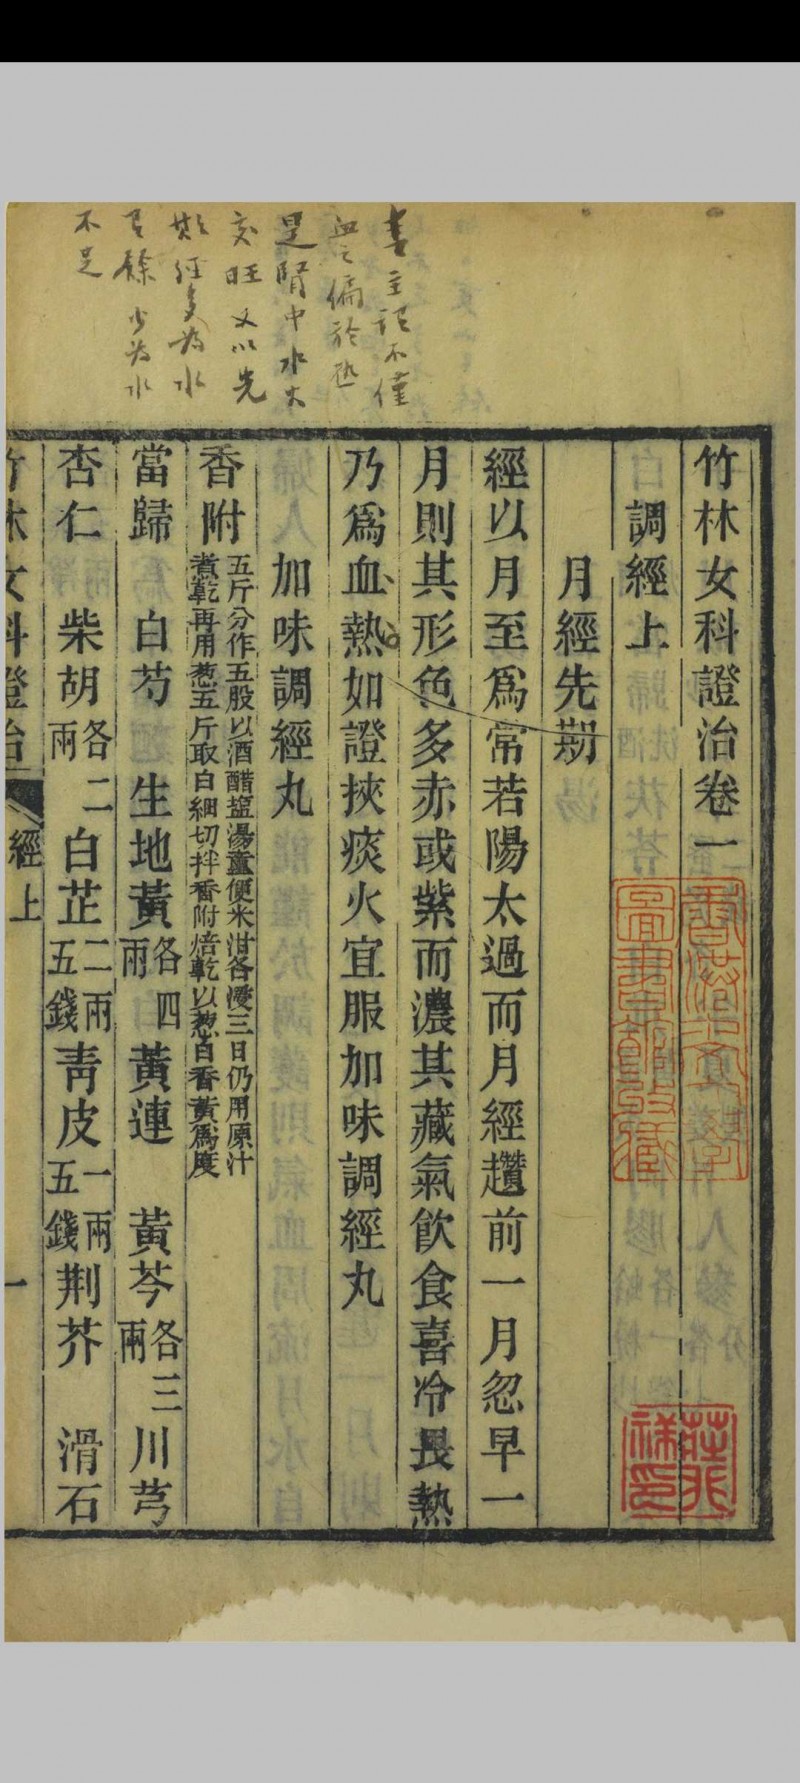 不僅
血之偏於熱
是腎中水火
交旺又以先
期經多為水
有餘少為水
不足
竹林女科證治卷一
調經上
月經先期
經以月至爲常若陽太過而月經趲前一月忽早一
月則其形色多赤或紫而濃其藏氣飲食喜冷畏熱
乃爲血熱如證挾痰火宜服加味調經丸
加味調經丸
香附五斤分作五股以酒醋盬湯童便米泔各浸三日仍用原汁煮乾再用葱五斤取白細切拌香附焙乾以葱白香黃爲度
當歸 白芍 生地黃各四兩黃連 黃芩各三兩川芎
杏仁 柴胡各二兩白芷二兩五錢青皮一兩五錢荆芥 滑石
竹林女科證治 經上 一